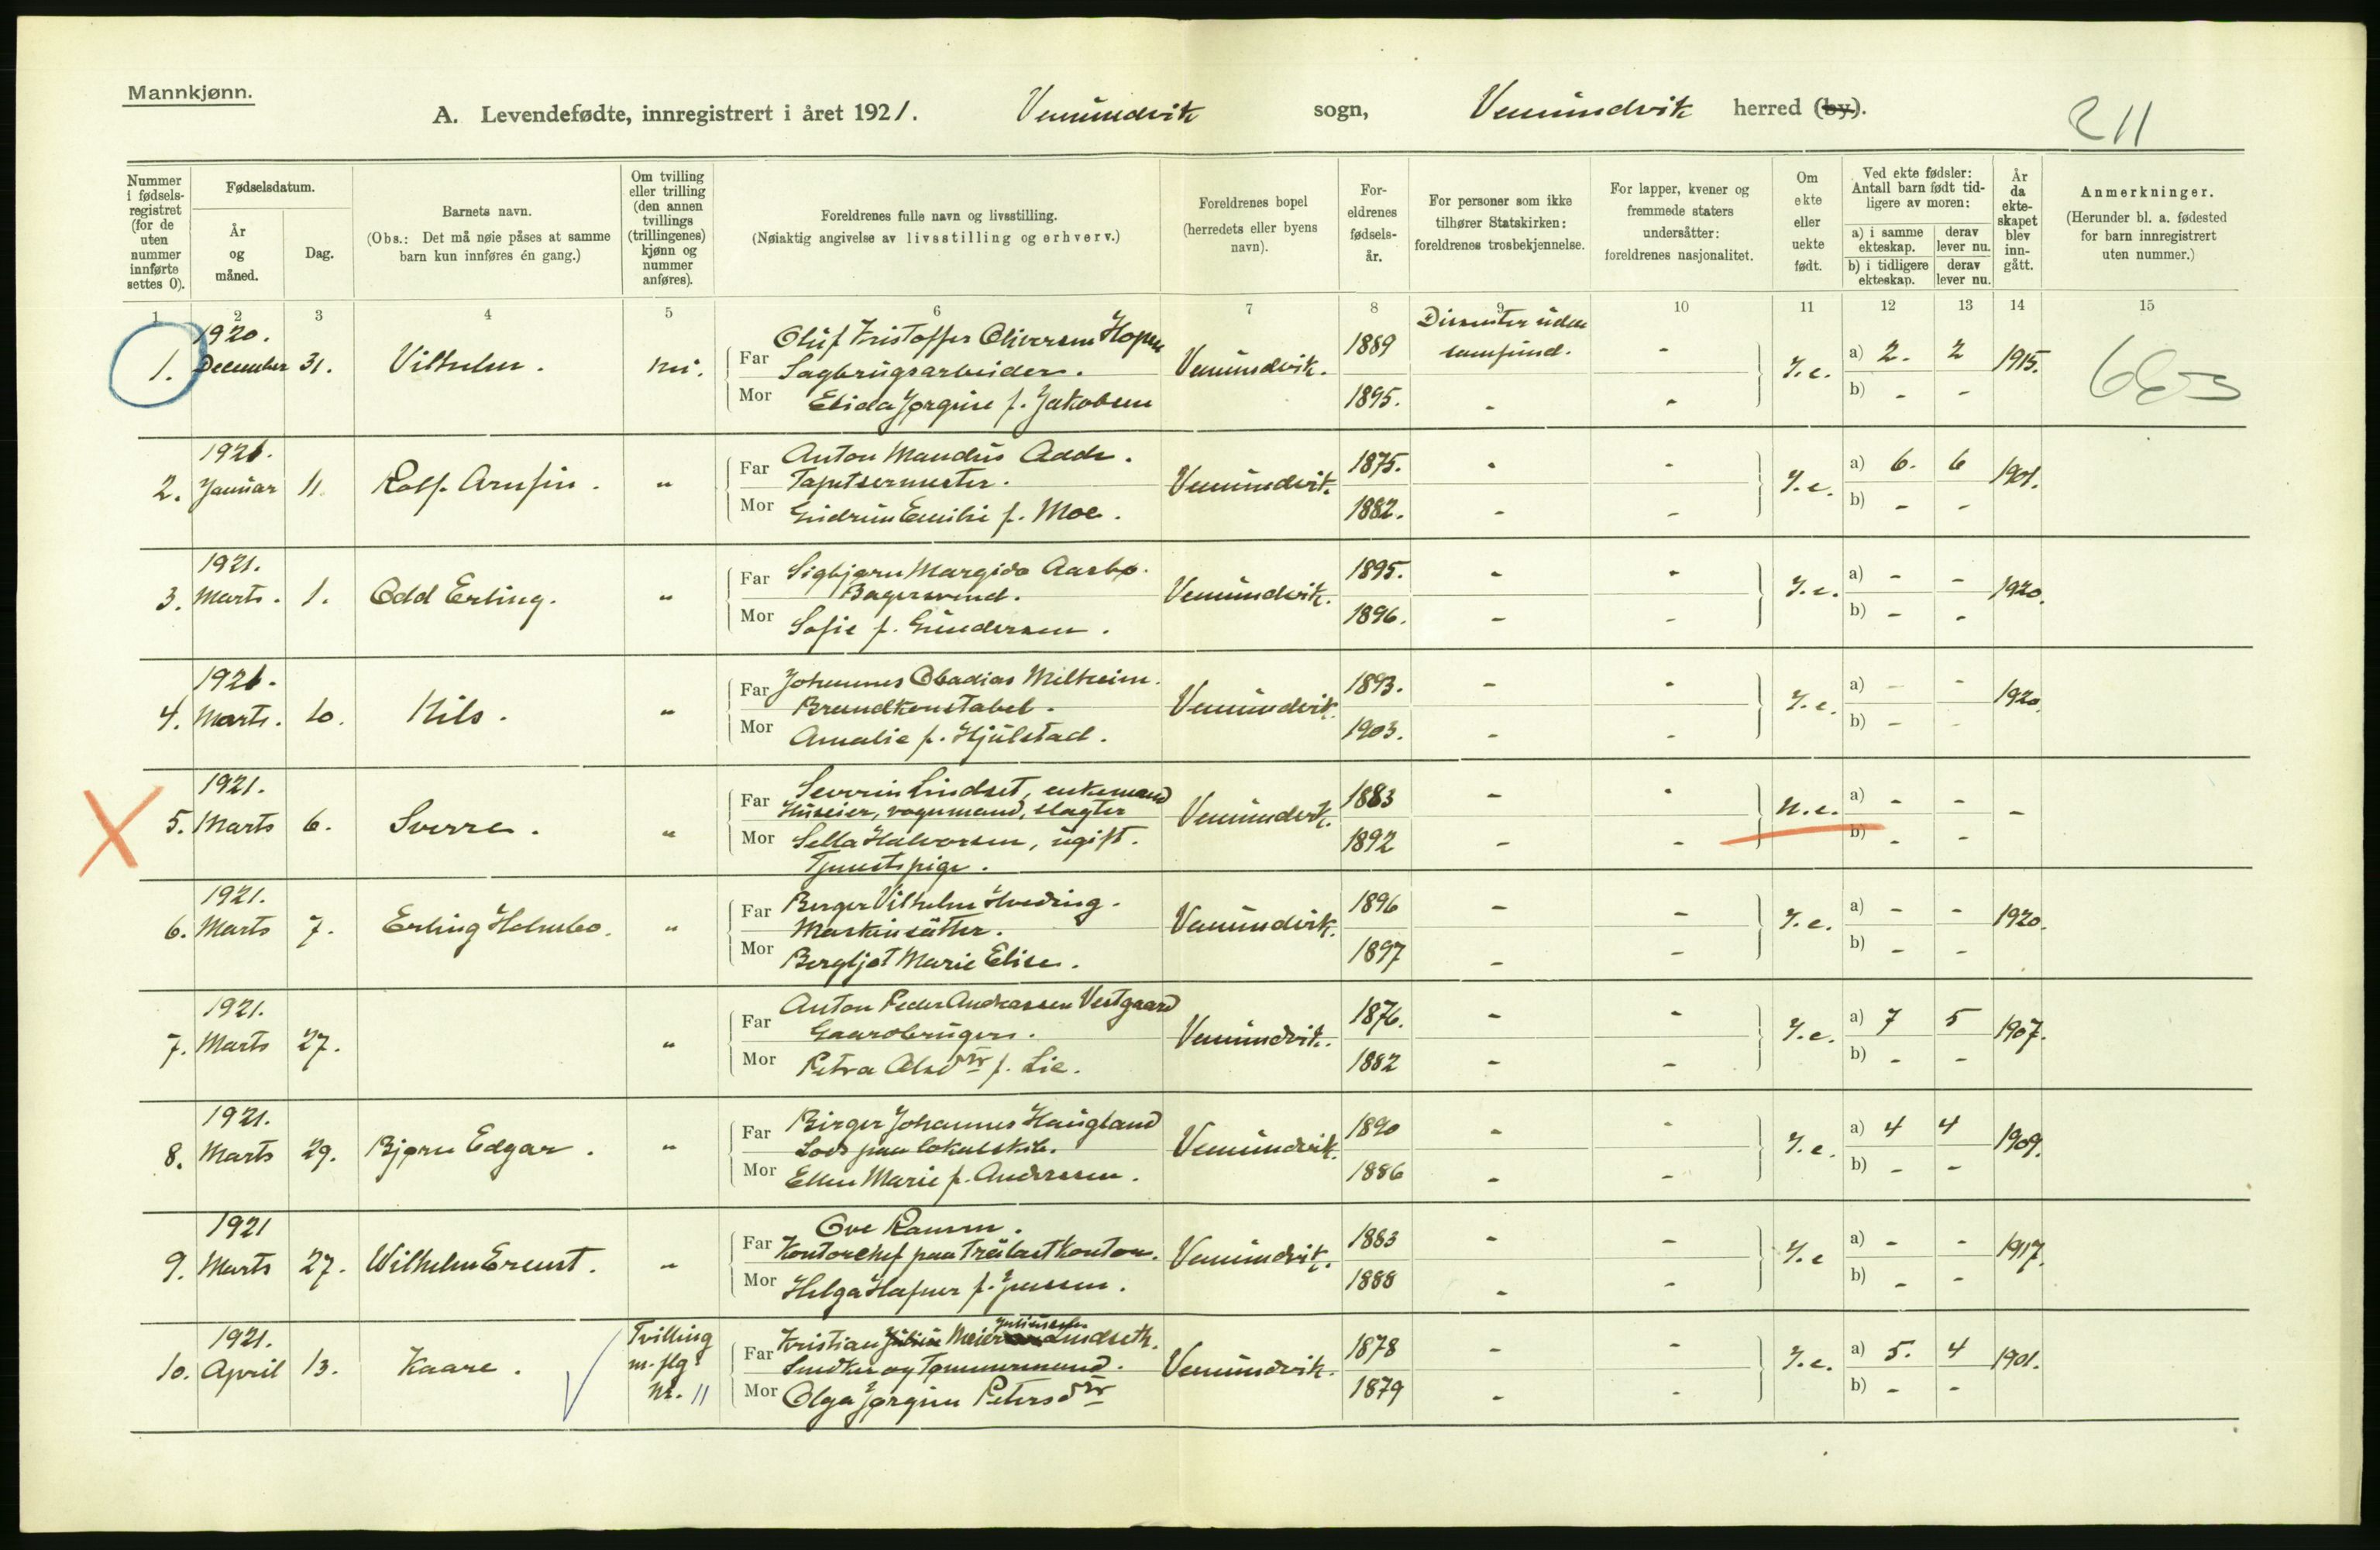 Mannkjønn.
A. Levendefødte, innregistrert i året 1921. Vemundvik sogn, Vemundvik herred (by).
211
Nummer i fødsels-registret (for de uten nummer innførte settes 0).
Fødselsdatum.
År og måned.
Dag.
Barnets navn.
(Obs.: Det må nøie påses at samme barn kun innføres én gang.)
Om tvilling eller trilling (den annen tvillings (trillingenes) kjønn og nummer anføres).
Foreldrenes fulle navn og livsstilling.
(Nøiaktig angivelse av livsstilling og erhverv.)
Foreldrenes bopel
(herredets eller byens navn).
For-eldrenes fødsels-år.
For personer som ikke tilhører Statskirken: foreldrenes trosbekjennelse.
For lapper, kvener og fremmede staters undersåtter: foreldrenes nasjonalitet.
Om ekte eller uekte født.
Ved ekte fødsler: Antall barn født tid-ligere av moren:
a) i samme ekteskap. derav lever nu.
b) i tidligere ekteskap. derav lever nu.
År da ekte-skapet blev inn-gått.
Anmerkninger.
(Herunder bl. a. fødested for barn innregistrert uten nummer.)
1 2 3 4 5 6 7 8 9 10 11 12 13 14 15
1920.
1. December 31. Vilhelm. nei.
Far Oluf Kristoffer Oliversen Hopen
Sagbrugsarbeider. Vemundvik. 1889 Dissenter uden samfund. - Y.e. a) 2. 2 1915.
Mor Elida Jørgine f. Jakobsen 1895. - - b) - -
1921.
2. Januar 11. Rolf Arnfin. "
Far Anton Mandius Adde.
Tapetsermester. Vemundvik. 1875. - - Y.e. a) 6. 6 1901.
Mor Gudrun Emilie f. Moe. 1882. - - b) - -
1921.
3. Marts. 1. Odd Erling. "
Far Sigbjørn Margido Aasbø.
Bagersvend. Vemundvik. 1895. - - Y.e. a) - - 1920.
Mor Sofie f. Gundersen. 1896. - - b) - -
1921.
4. Marts. 10. Nils. "
Far Johannes Obadias Milheim.
Brandkonstabel. Vemundvik. 1893. - - Y.e. a) - - 1920.
Mor Amalie f. Hjulstad. 1903. - - b) - -
1921.
5. Marts 6. Sverre. "
Far Severin Lindset, enkemand
Huseier, vognmand, slagter Vemundvik. 1883 - - U.e. a) - - -
Mor Sella Halvorsen, ugift. 1892 - - b) - -
Tjenestpige.
1921.
6. Marts 7. Erling Holmbo. "
Far Berger Vilhelm Hveding.
Maskinsætter. Vemundvik. 1896 - - Y.e. a) - - 1920.
Mor Bergljot Marie Elise. 1897 - - b) - -
1921.
7. Marts 27. "
Far Anton Peder Andreassen Vestgaard
Gaardbruger. Vemundvik. 1876. - - Y.e. a) 7 5 1907.
Mor Petra f. Lie. 1882 - - b) - -
1921.
8. Marts 29. Bjørn Edgar. "
Far Birger Johannes Haugland
Lods paa lokalskib. Vemundvik. 1890 - - Y.e. a) 4 4 1909.
Mor Ellen Marie f. Andressen. 1886 - - b) - -
1921
9. Marts 27. Wilhelm Ernst. "
Far Ove
Kontorchef paa Trælastkontor. Vemundvik. 1883 - - Y.e a) - - 1917.
Mor Helga Hafner f. Jensen. 1888 - - b) - -
1921. Tvilling
10. April 13. Kaare. m. pige
Nr. 11
Far Kristian Meier Lindseth.
Snedker og Tømmermand. Vemundvik. 1878 - - Y.e. a) 5. 4 1901.
Mor Olga Jørgine Petersdtr 1879 - - b) - -